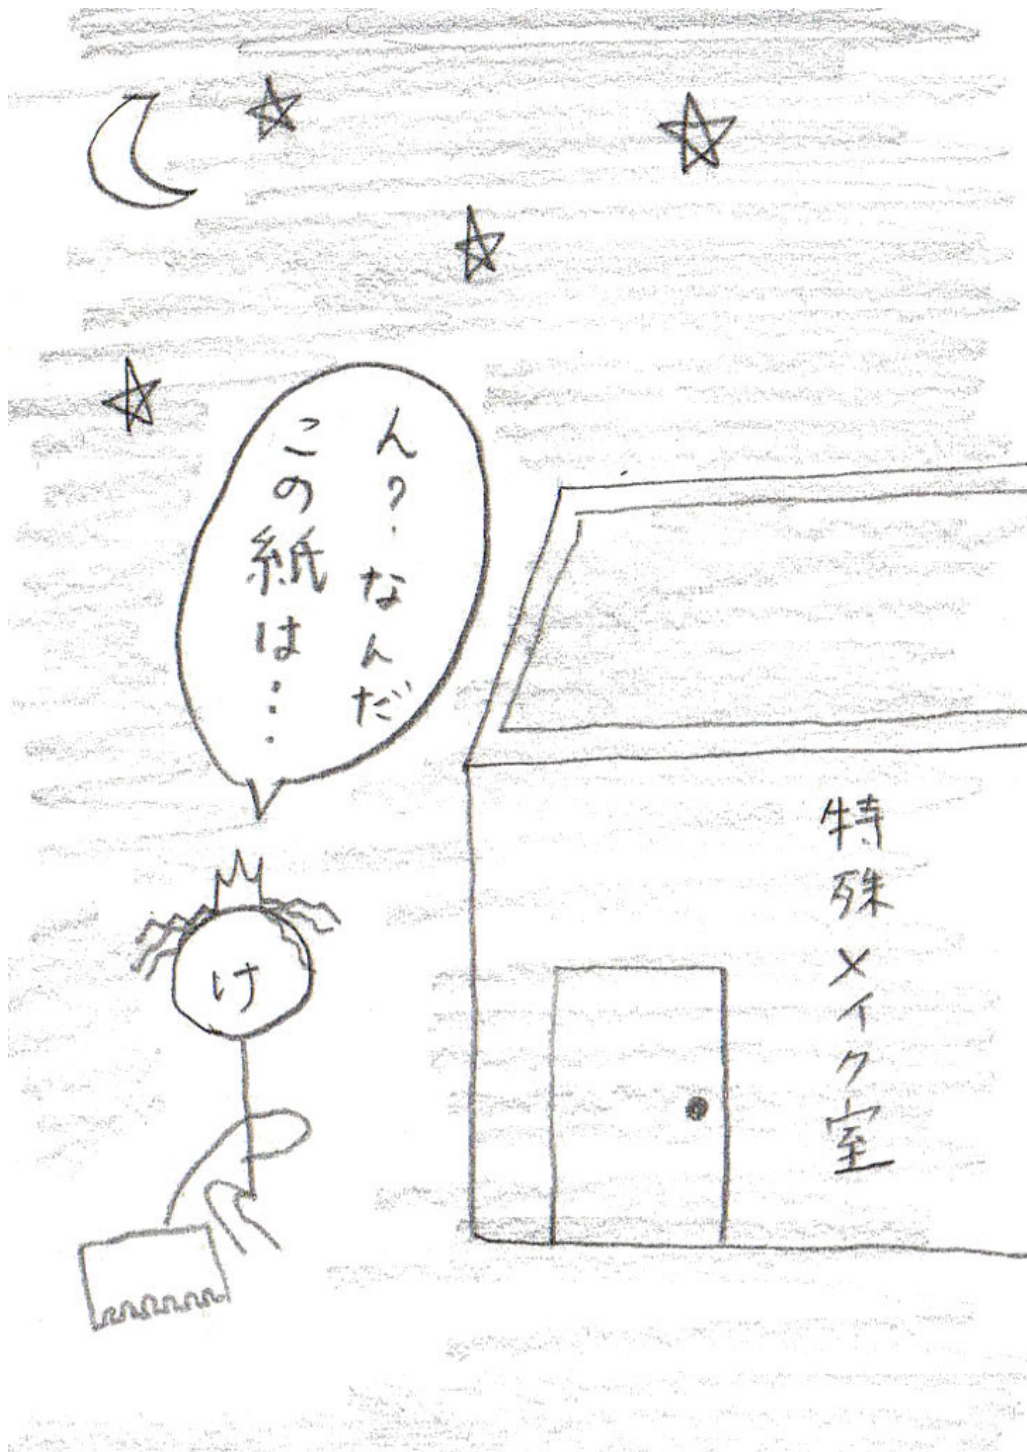 ん？なんだ
この紙は…
け
特殊メイク室